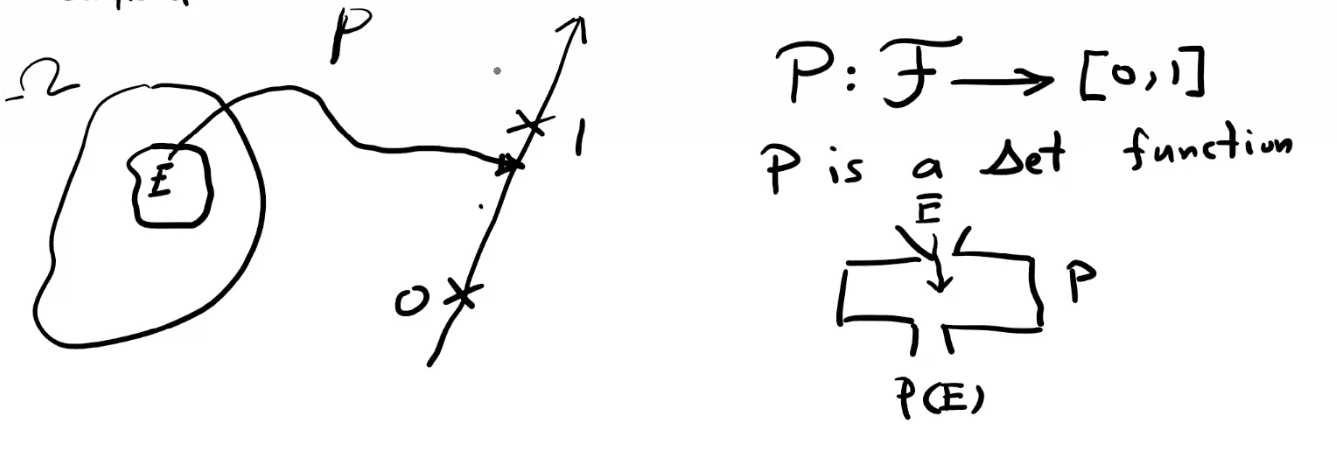 P
Ω
E
1
0
P: ℱ → [0,1]
P is a set function
E
P
P(E)